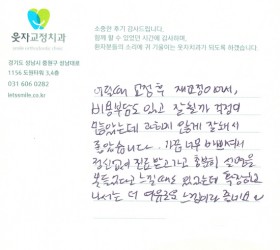 웃자교정치과
smile orthodontic clinic
경기도 성남시 중원구 성남대로
1156 도원타워 3,4층
031 606 0282
letsmile.co.kr
소중한 후기 감사드립니다.
함께 할 수 있었던 시간에 감사하며,
환자분들의 소리에 귀 기울이는 웃자치과가 되도록 하겠습니다.
어렸을때 교정 후 재교정이어서,
비용부담도 있고 잘 될까 걱정이
많았는데 과하지 않게 잘돼서
좋았습니다. 가끔 너무 바빠서
정신없이 진료받고가고 충분히 설명을
못들었다고 느낄때도 있었는데 확장하고
나서는 더 여유로움 느낌이라